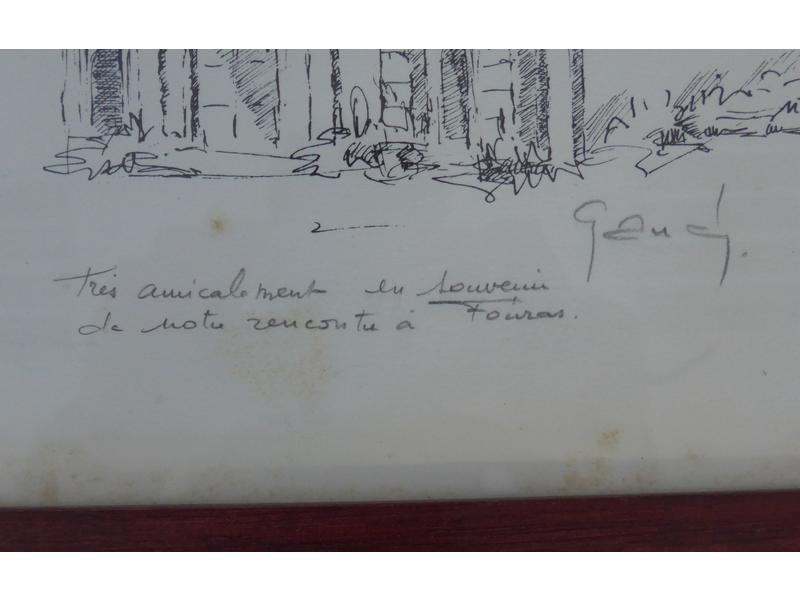 Très amicalement en souvenir
de notre rencontre à Fouras.